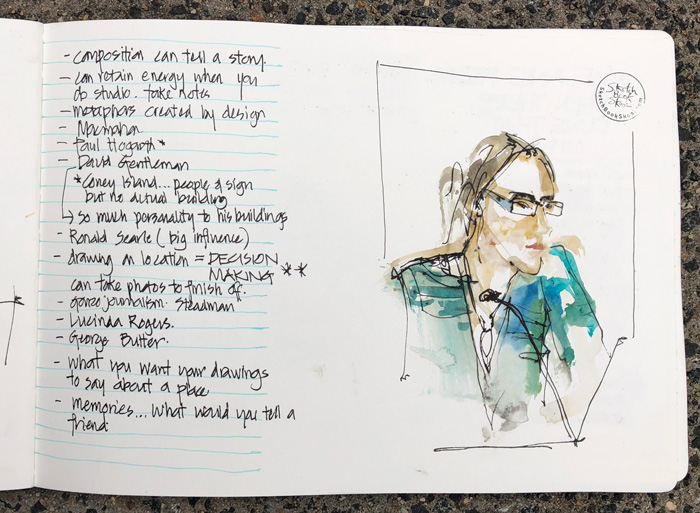 - composition can tell a story
- can retain energy when you
do studio. take notes
- metaphors created by design
- Macmahon
- Paul Hogarth*
- David Gentleman
*Coney Island... people & sign
but no actual building
→ so much personality to his buildings
- Ronald Searle (big influence)
- drawing on location = DECISION
MAKING **
can take photos to finish of
- gonzo journalism. Steadman
- Lucinda Rogers.
- George Butler.
- What you want your drawings
to say about a place
- memories... what would you tell a
friend.
Sketch
Book
Skool
SketchBookSkool.com